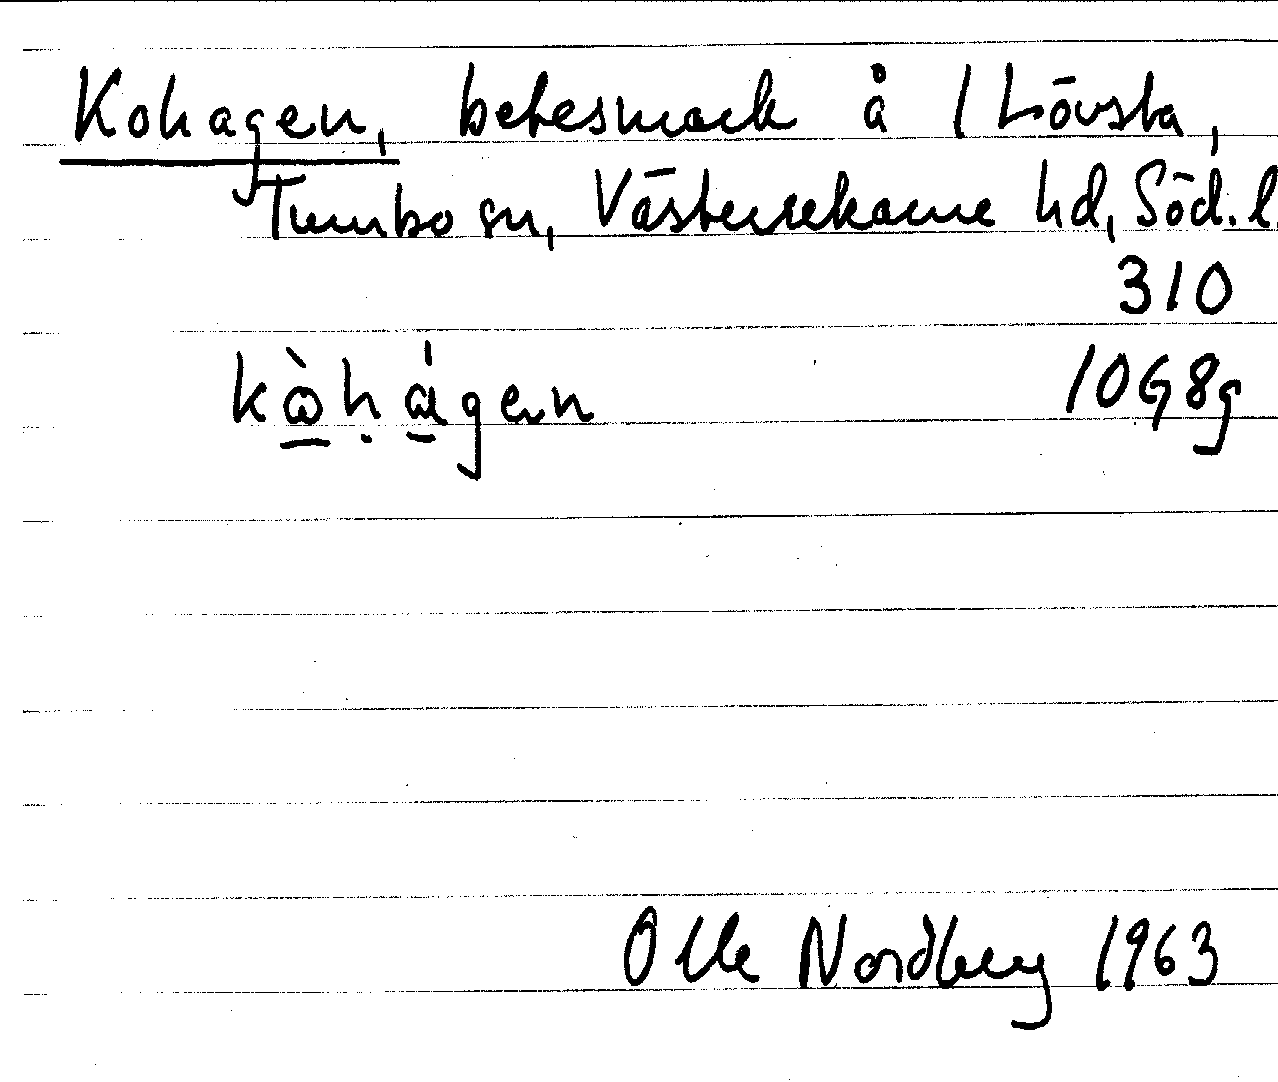 Kohagen, betesmark å 1 Lövsta,
Tumbo sn, Västerrekarne hd, Söd. l.
310
kòhágen 10G8g
Olle Nordberg 1963